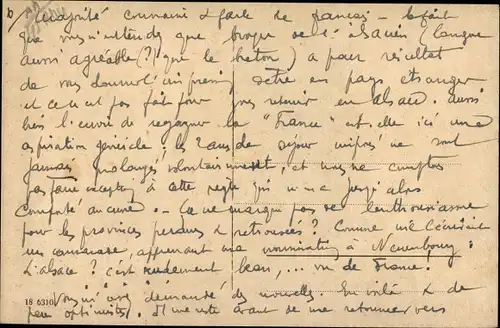 majorité connaisse & parle le français – le fait
que vous n'entendez que broyer de l'alsacien (langue
aussi agréable (?) que le breton) a pour résultat
de vous donner l'impression d'être en pays étranger
et ce n'est pas fait pour vous retenir en Alsace. Aussi
bien l'envie de regagner la "France" est-elle ici une
aspiration générale. Les 2 ans de séjour imposé ne sont
jamais prolongés volontairement, et nous ne comptons
pas faire exception à cette règle qui n'a jusqu'alors
comporté aucune. – Ça ne marque pas de l'enthousiasme
pour les provinces perdues & retrouvées ? Comme me l'écrivait
un camarade, apprenant ma nomination à
L'Alsace ? c'est rudement beau, ... vu de France.
18 6310
Vous m'avez demandé des nouvelles. En voilà & de
peu optimistes. Il me reste avant de me retourner vers